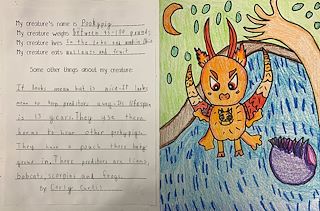 My creature's name is Porkypig.
My creature weighs between 50-100 pounds
My creature lives in the lake and in
My creature eats walnuts and fruit.
Some other things about my creature:
It looks mean but is nice. It looks
mean so top predators away. Its lifespan
is 13 years. They use there
horns to hear other porkypigs.
They have a pouch there baby
grows in. There predators are lions,
bobcats, scorpins and frogs.
By Carly Curtis